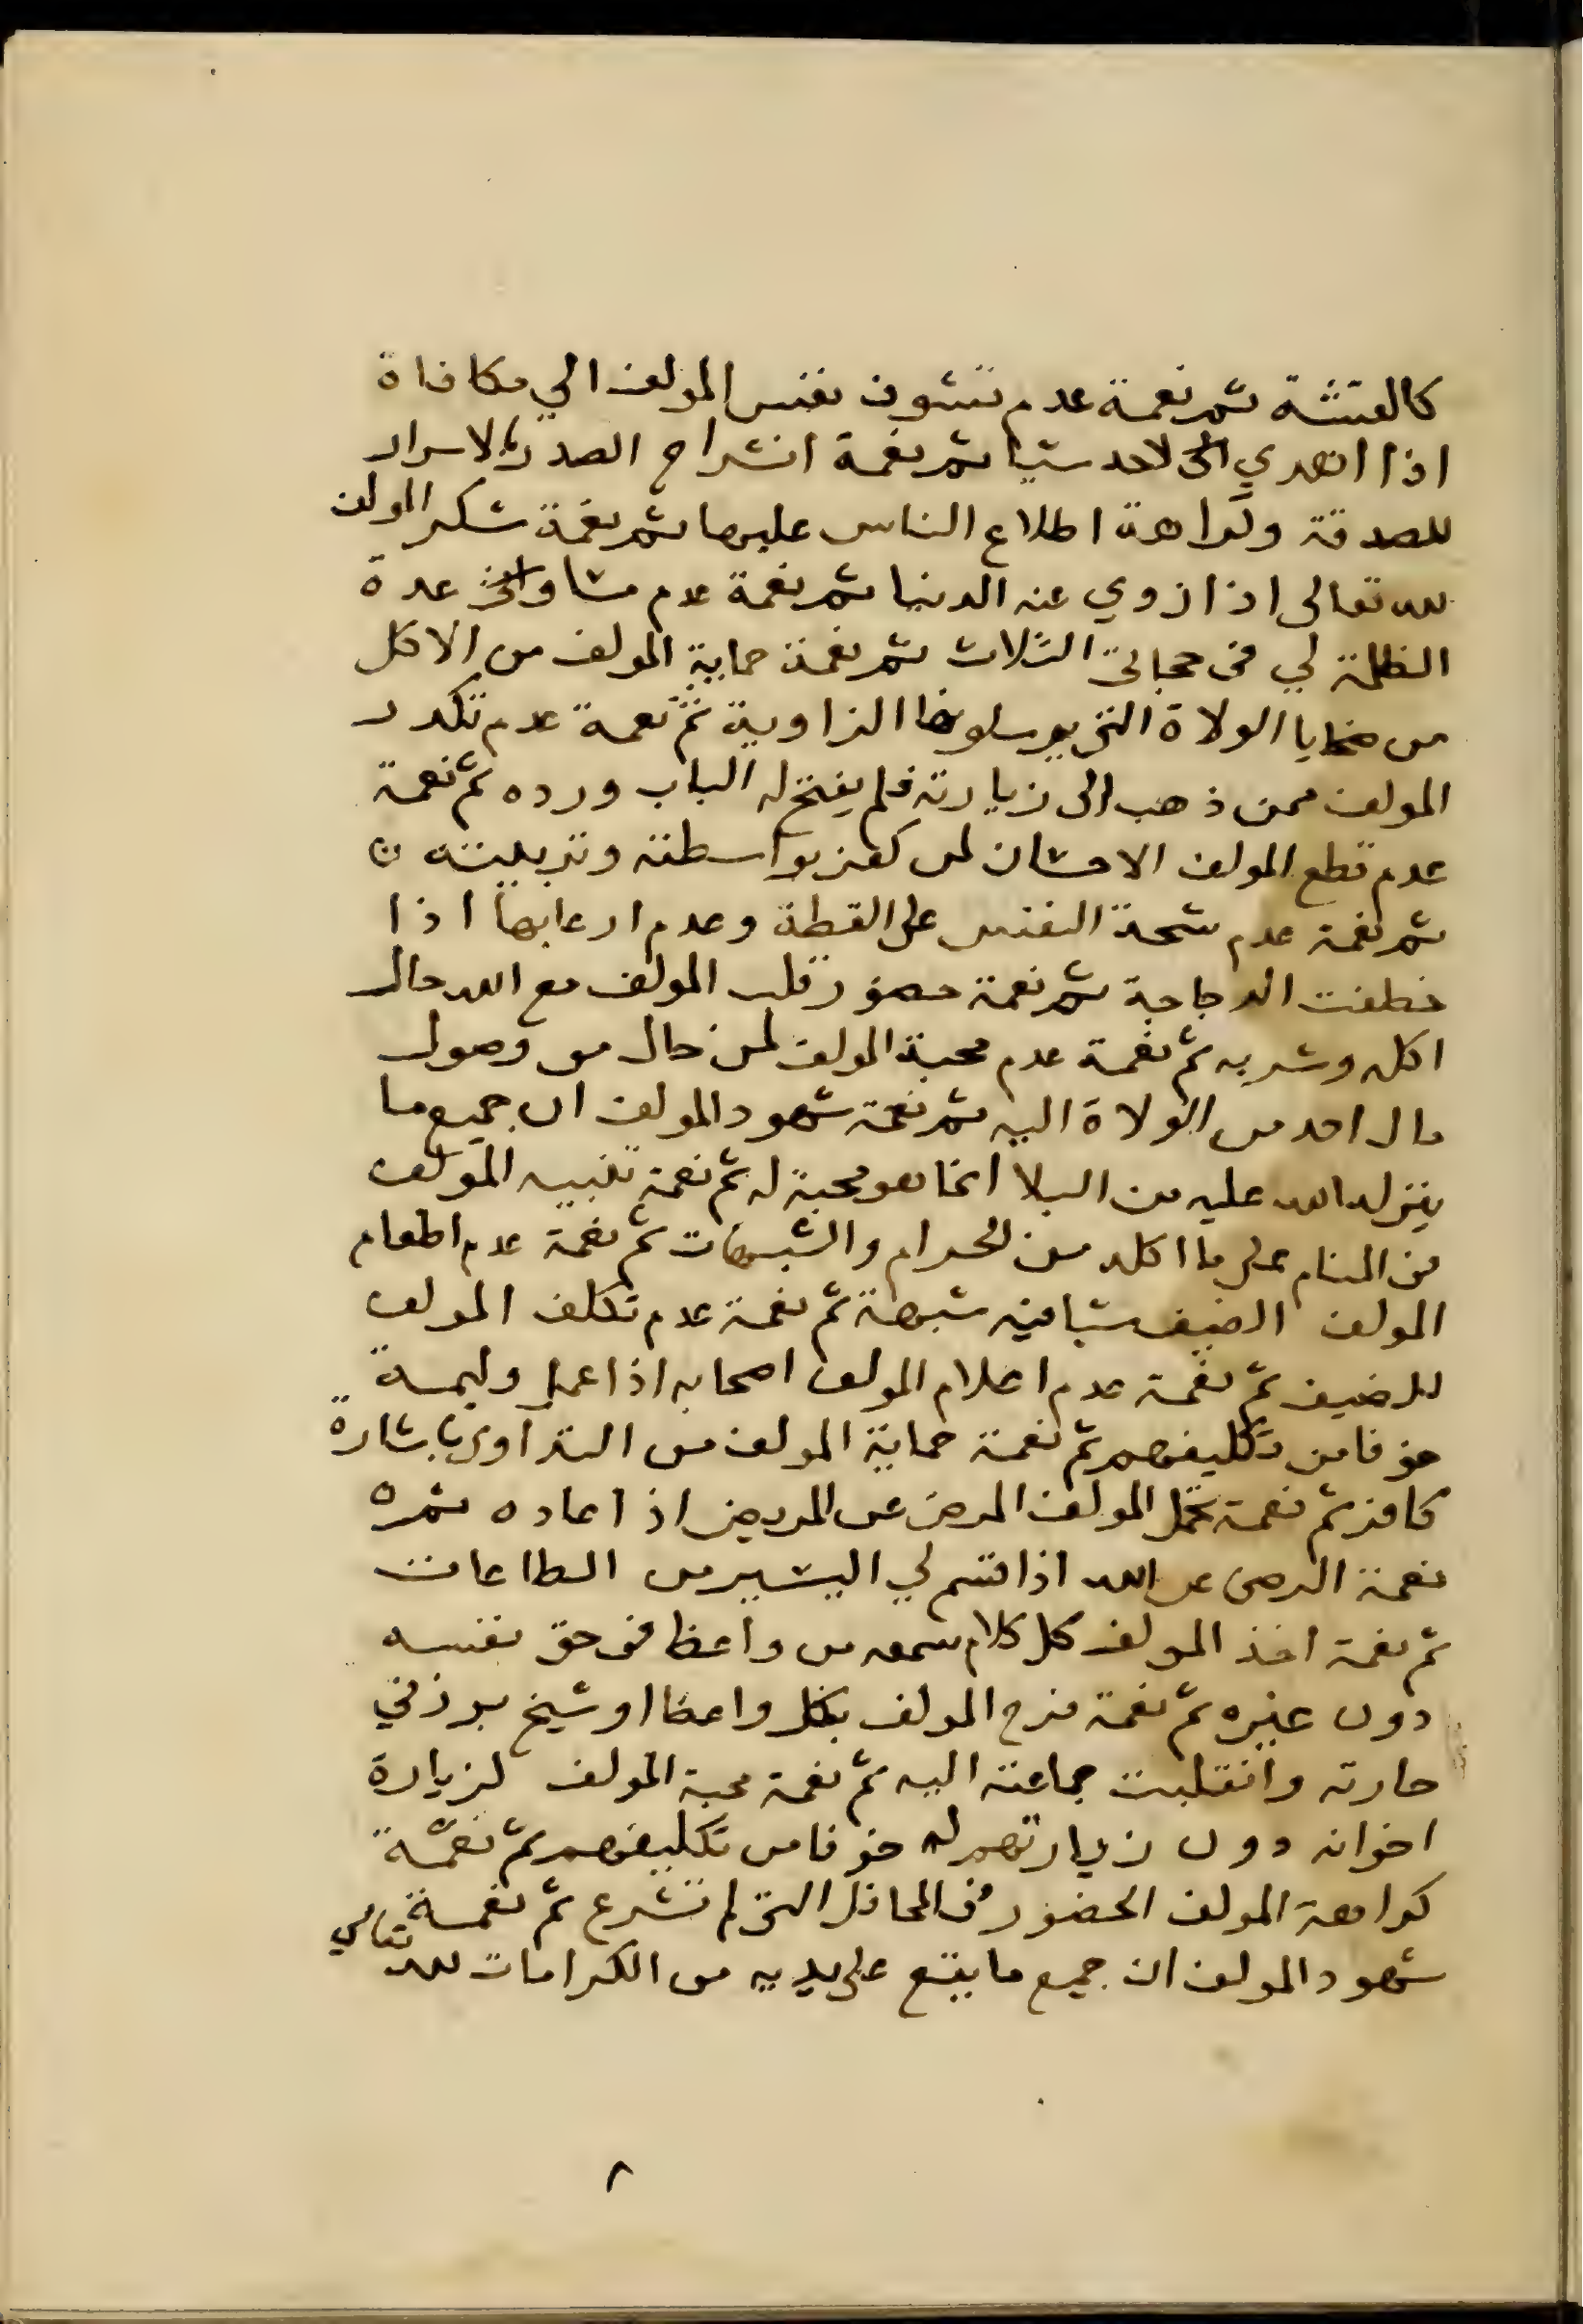 كالقشة ثم نعمة عدم تشوف نفس المولف الي مكافاة
اذا اهدي لاحد شيا ثم نعمة انشراح الصدر بالاسرار
للصدقة وكراهة اطلاع الناس عليها ثم نعمة شكر المولف
لله تعالى اذا زوي عنه الدنيا ثم نعمة عدم عدة
الظلمة لي في الثلاث ثم نعمة حماية المولف من الاكل
من ضحايا الولاة التي يرسلونها الزاوية ثم نعمة عدم تكدر
المولف ممن ذهب الى زيارته فلم يفتح له الباب ورده ثم نعمة
عدم قطع المولف الاحسان لمن كفر بواسطته وتربيته
ثم نعمة عدم شحة النفس على القطة وعدم ارعابها اذا
خطفت الدجاجة ثم نعمة حضور قلب المولف مع الله حال
اكله وشربه ثم نعمة عدم محبة المولف لمن حال من وصول
مال احد من الولاة اليه ثم نعمة شهود المولف ان جميع ما
ينزله الله عليه من البلا انما هو محبة له ثم نعمة تنبيه المولف
في المنام على ما اكله من الحرام والشبهات ثم نعمة عدم اطعام
المولف الضيف شيا فيه شبهة ثم نعمة عدم تكلف المولف
للضيف ثم نعمة عدم اعلام المولف اصحابه اذا عمل وليمة
خوفا من تكليفهم ثم نعمة حماية المولف من التداوي باشارة
كافر ثم نعمة تحمل المولف المرض عن المريض اذا عاده ثم
نعمة الرضى عن الله اذا قسم لي اليسير من الطاعات
ثم نعمة اخذ المولف كل كلام سمعه من واعظ في حق نفسه
دون غيره ثم نعمة فرح المولف بكل واعظ او شيخ برز في
حارته وانقلبت جماعته اليه ثم نعمة محبة المولف لزيارة
اخوانه دون زيارتهم له خوفا من تكليفهم ثم نعمة
كراهة المولف الحضور في المحافل التي لم تشرع ثم نعمة
شهود المولف ان جميع ما يقع على يديه من الكرامات لله تعالي
٨